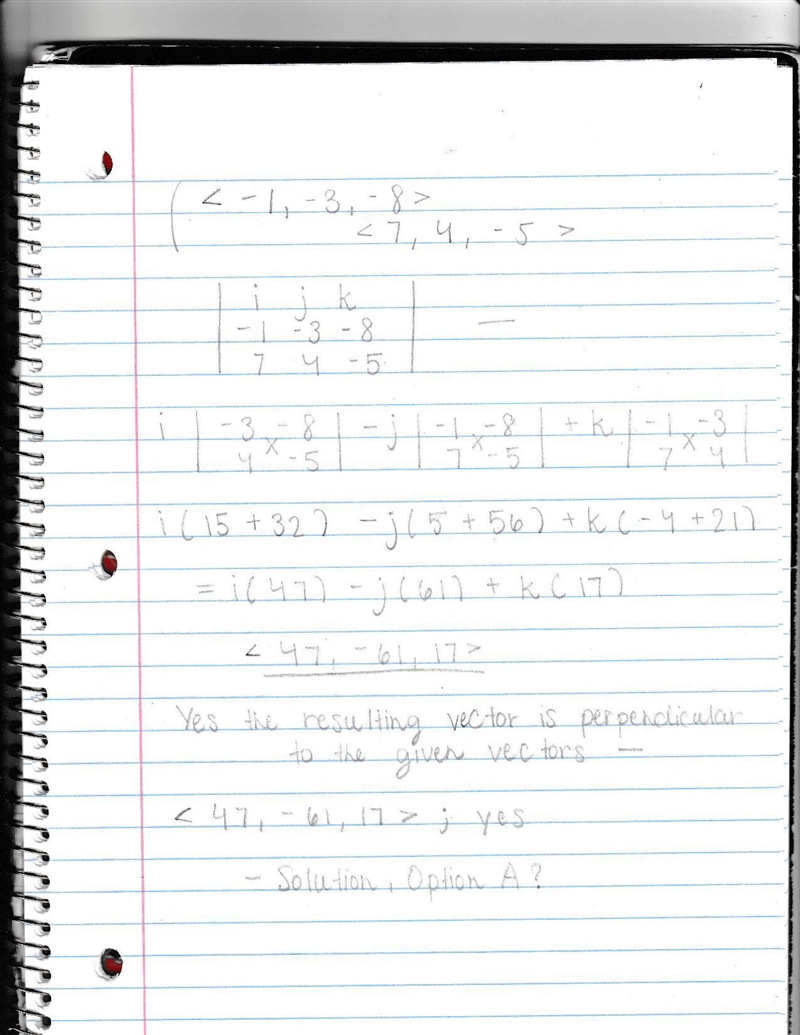 < -1, -3, -8>
<7, 4, -5 >
| i j k |
| -1 -3 -8 | —
| 7 4 -5 |
i | -3 x -8 | -j | -1 x -8 | + k | -1 x -3 |
| 4 -5 | | 7 -5 | | 7 4 |
i(15 + 32) -j(5 + 56) + k(-4 + 21)
= i(47) - j(61) + k(17)
< 47, -61, 17>
Yes the resulting vector is perpendicular
to the given vectors —
< 47, -61, 17 > j yes
- Solution, Option A?